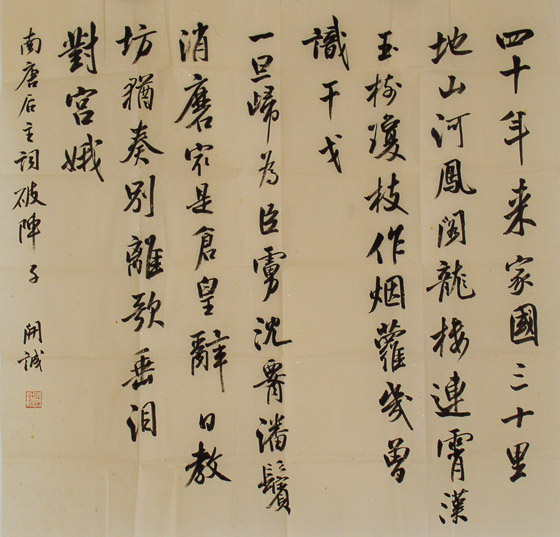 四十年来家國三十里
地山河鳳閣龍楼連霄漢
玉樹瓊枝作烟蘿幾曾
識干戈
一旦歸為臣虜沈腰潘鬢
消磨最是倉皇辭日教
坊猶奏别離歌垂泪
對宮娥
南唐后主詞破陣子 開誠